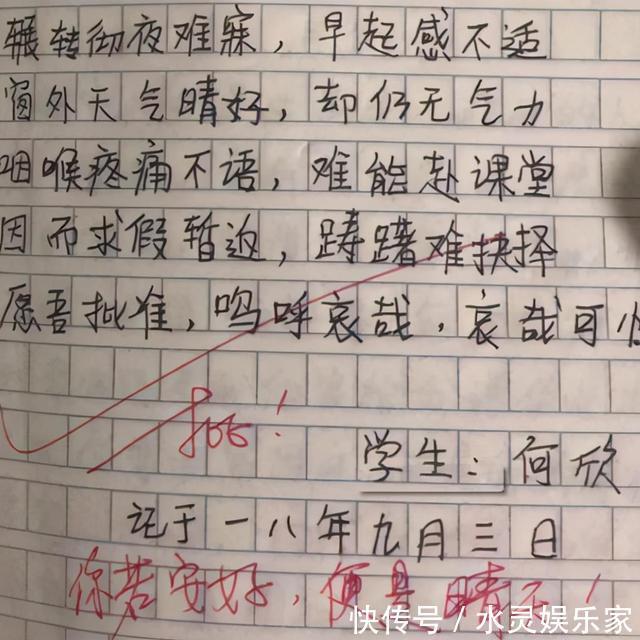 辗转彻夜难寐，早起感不适
窗外天气晴好，却仍无气力
咽喉疼痛不语，难能赴课堂
因而求假暂返，踌躇难抉择
愿吾批准，呜呼哀哉，哀哉可怜
批！
学生：何欣
记于一八年九月三日
你若安好，便是晴天！
快传号／水灵娱乐家